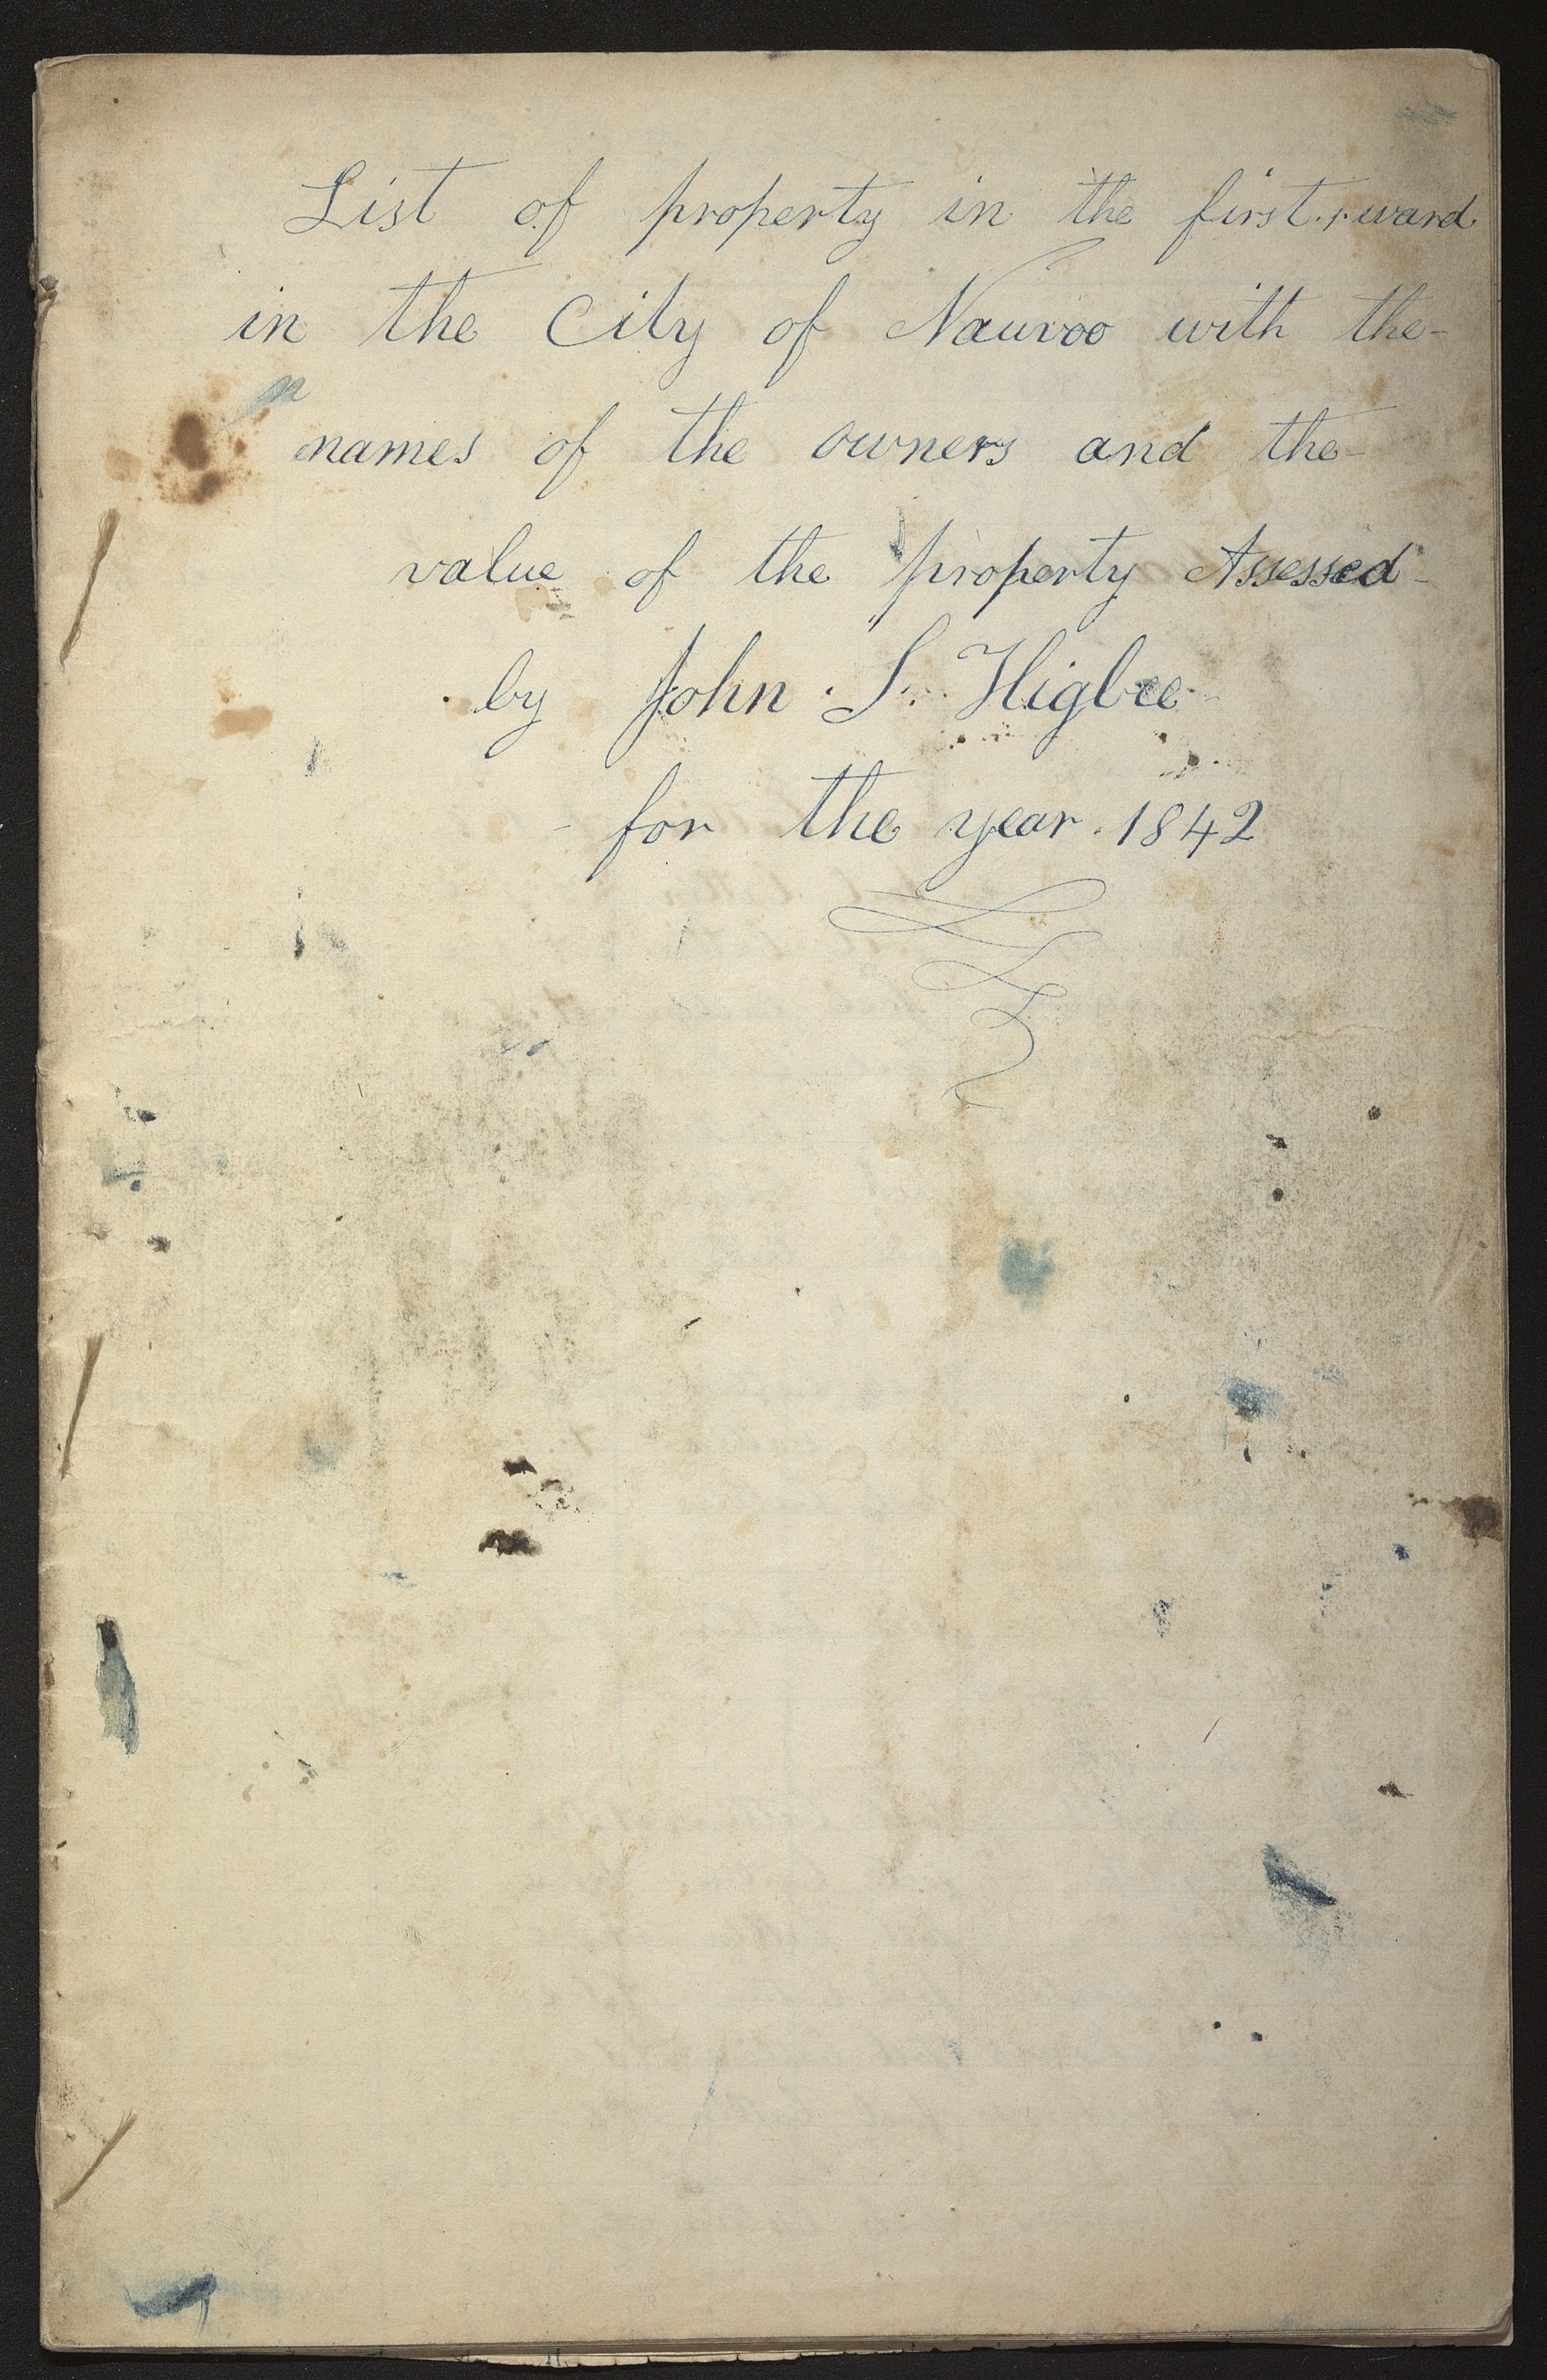 List of property in the first ward
in the City of Nauvoo with the-
names of the owners and the-
value of the property Assessed-
by John S. Higbee-
- for the year. 1842